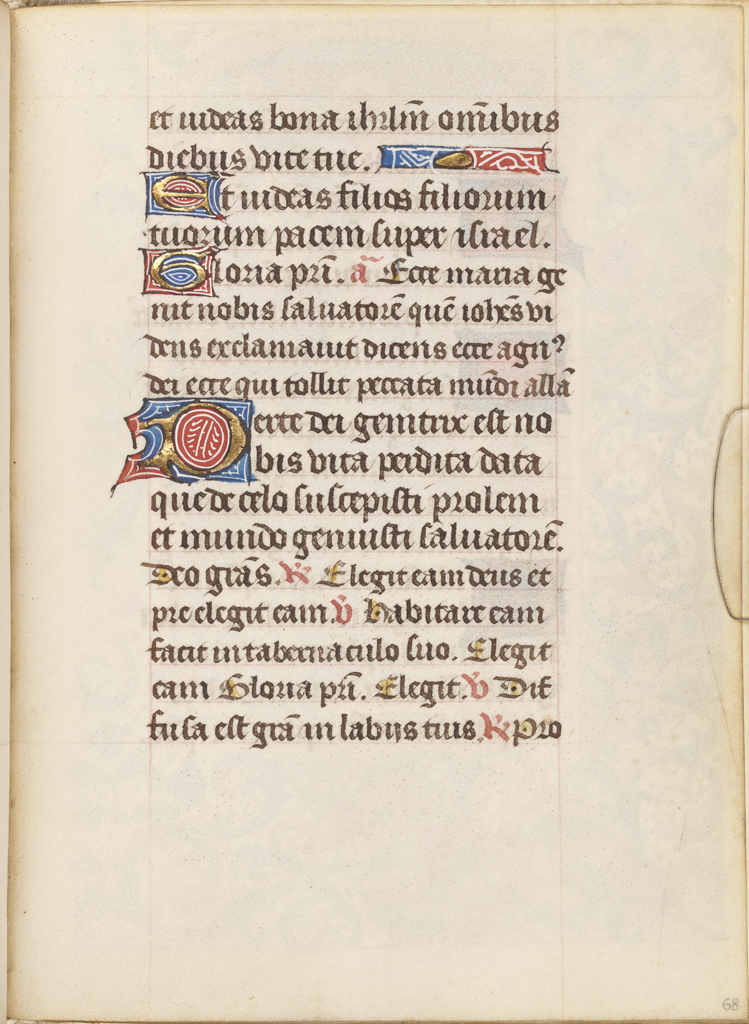 et uideas bona ihrlm̄ om̄ibus
diebus vite tue.
Et uideas filios filiorum
tuorum pacem super israel.
Gloria pr̄i. a᷎ Ecce maria ge
nit nobis saluatorē quē iohēs vi
dens exclamauit dicens ecce agn᷒
dei ecce qui tollit peccata mūdi allā
Per te dei genitrix est no
bis vita perdita data
que de celo suscepisti prolem
et mundo genuisti saluatorē.
Deo grās. ℟ Elegit eam deus et
pre elegit eam. ℣ habitare eam
facit in tabernaculo suo. Elegit
eam Gloria pr̄i. Elegit. ℣ Dif
fusa est grā in labijs tuis. ℟ Pro
68